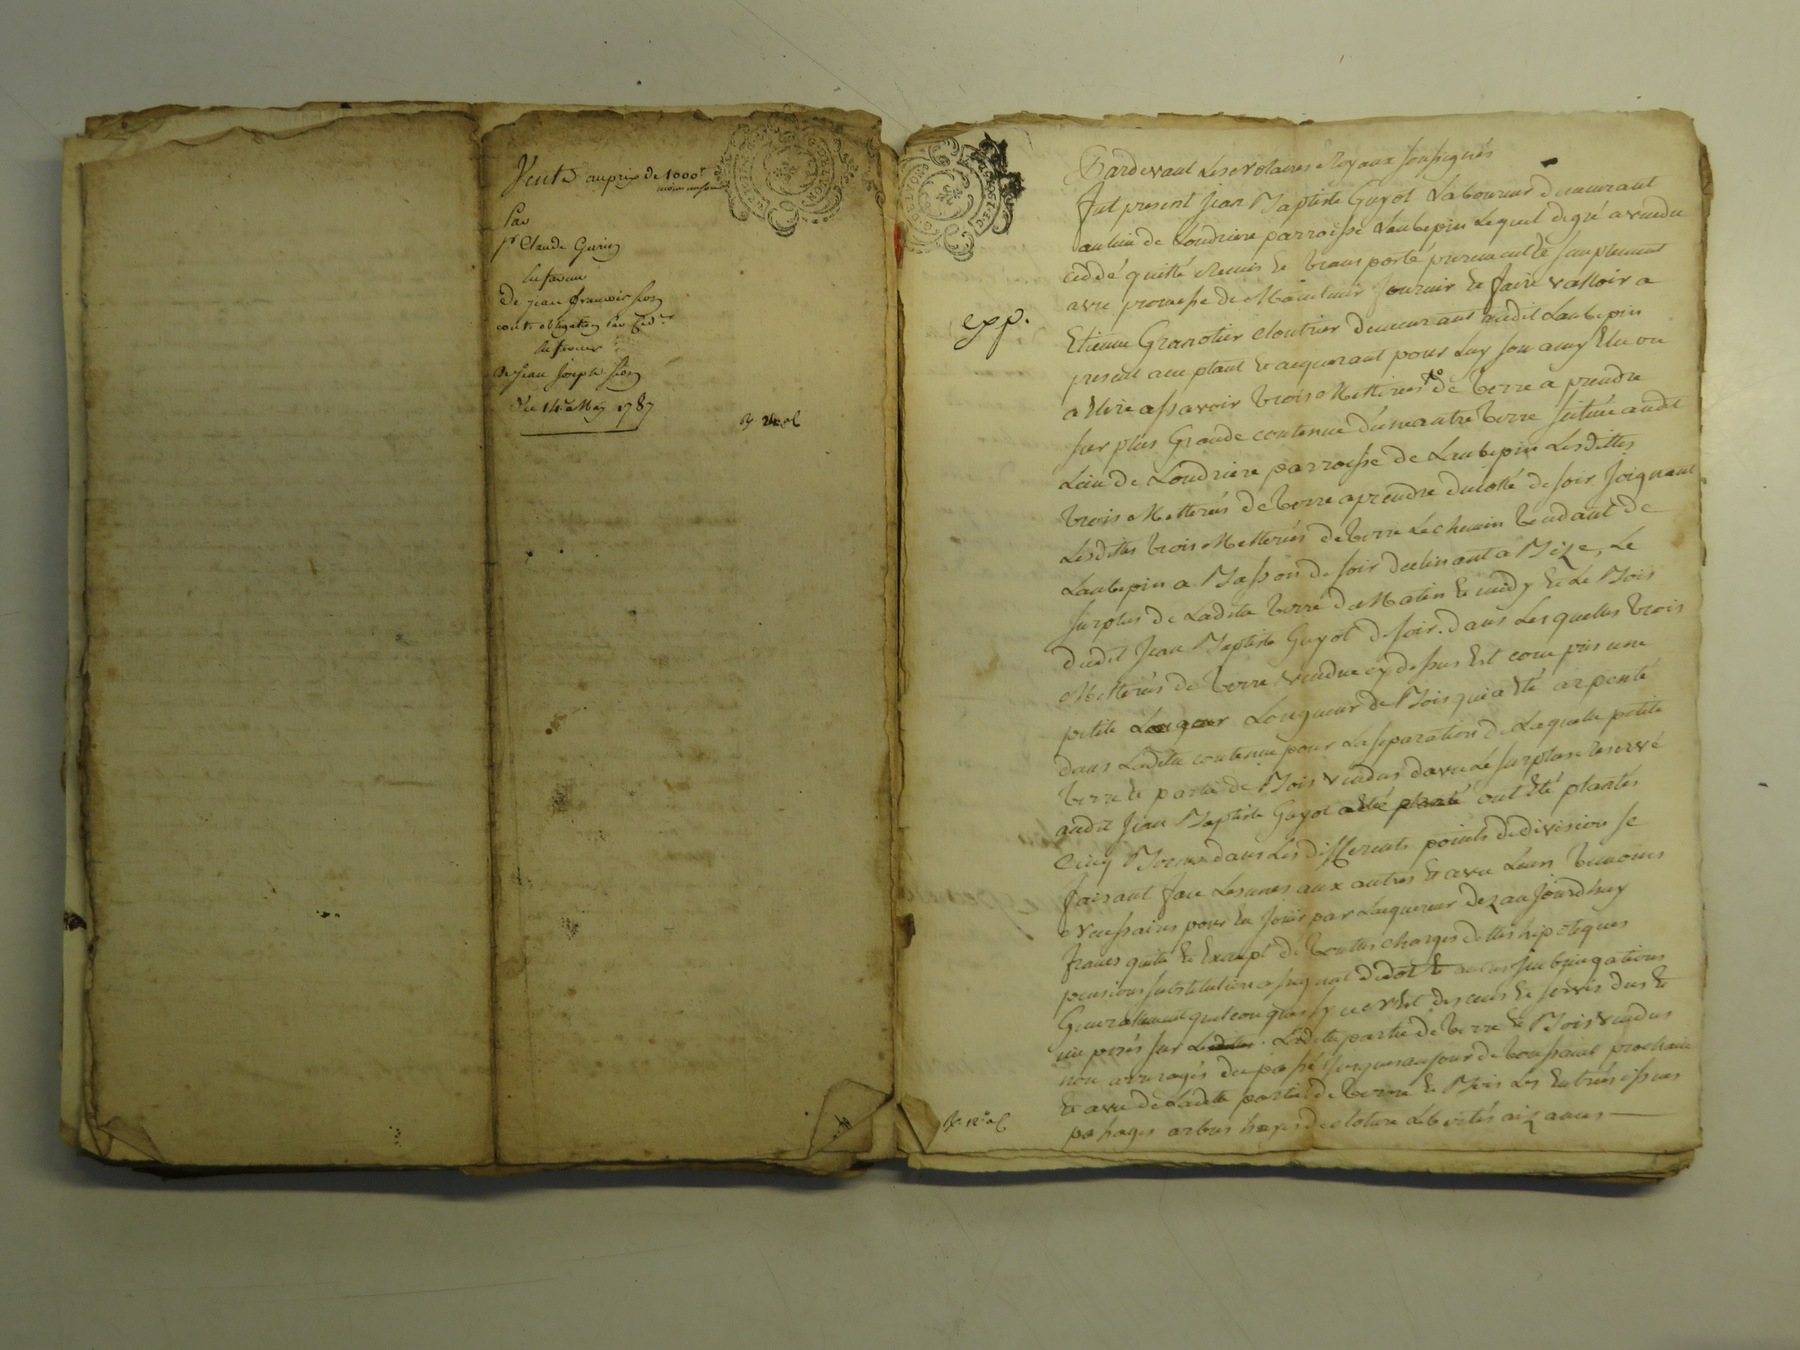 Vente au prix de 1000#
Par
Sr Claude Guerin
en faveur
De jean francois
en faveur
de jean joseph
Du 14e May 1787
Pardevant Les Notaires Royaux soussignés
fut present jean Baptiste Guyot Laboureur demeurant
au lieu de Londriere parroisse Laubepin Lequel de gré a vendu
ceddé quitté Remis et transporté purement et simplement
avec promesse de Maintenir fournir et faire valloir a
exp.
Etienne Granotier Cloutier demeurant audit Laubepin
present acceptant et acquerant pour Luy son amy Elu ou
a Elire assavoir trois Metterées de terre a prendre
sur plus Grande contenue d'une autre terre scituée audit
Lieu de Londriere parroisse de Laubepin Lesdittes
trois Metterées de terre a prendre du costé de soir joignant
Lesdites trois Metterées de terre Le chemin tendant de
Laubepin a Basson de soir declinant a Bize, Le
surplus de Ladite terre de Matin et midy et Le Bois
dudit Jean Baptiste Guyot de soir. dans Lesquelles trois
Metterées de terre vendue cy dessus Est compris une
petite Longueur de Bois qui a Eté arpenté
dans Ladite contenue pour La separation de Laquelle petite
terre et partie de Bois vendus davec Le surplus reservé
audit Jean Baptiste Guyot a eté planté ont Eté plantés
Cinq Bornes dans Les differents points de division se
faisant face Les unes aux autres et avec Leurs temoins
pour En jouir par Lacquereur dez aujourdhuy
francs quitte Et Exempt de touttes charges dettes hipoteques
pensions substitution assignat de dot Et autres subrogations
Generallement quelconques sy ce n'est des cens Et servis dus Et
imposés sur Ladite partie de terre et Bois vendus
non arreragés du passé jusques au jour de toussaint prochaine
Et avec de Ladite partie de terre Et Bois Les Entrées issues
passages arbres hayes de cloture Libertés aizances